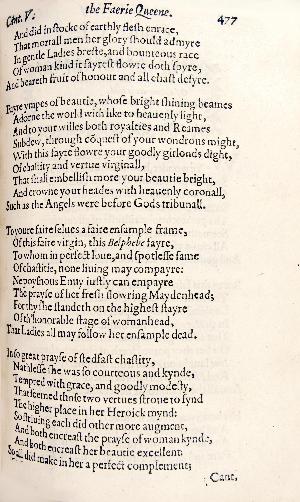 Cant. V. the Faerie Queene. 477
And did in stocke of earthly flesh enrace,
That mortall men her glory should admyre
In gentle Ladies breste, and bounteous race
Of woman kind it fayrest flowre doth spyre,
And beareth fruit of honour and all chast desyre.
Fayre ympes of beautie, whose bright shining beames
Adorne the world with like to heauenly light,
And to your willes both royalties and Reames
Subdew, through cõquest of your wondrous might,
With this fayre flowre your goodly girlonds dight,
Of chastity and vertue virginall,
That shall embellish more your beautie bright,
And crowne your heades with heauenly coronall,
Such as the Angels weare before Gods tribunall.
To youre faire selues a faire ensample frame,
Of this faire virgin, this Belphebe fayre,
To whom in perfect loue, and spotlesse fame
Of chastitie, none liuing may compayre:
Ne poysnous Enuy iustly can empayre
The prayse of her fresh flowring Maydenhead;
For thy she standeth on the highest stayre
Of th'honorable stage of womanhead,
That Ladies all may follow her ensample dead.
In so great prayse of stedfast chastity,
Nathlesse she was so courteous and kynde,
Tempred with grace, and goodly modesty,
That seemed those two vertues stroue to fynd
The higher place in her Heroick mynd:
So striuing each did other more augment,
And both encreast the prayse of woman kynde,
And both encreast her beautie excellent;
So all did make in her a perfect complement;
Cant.